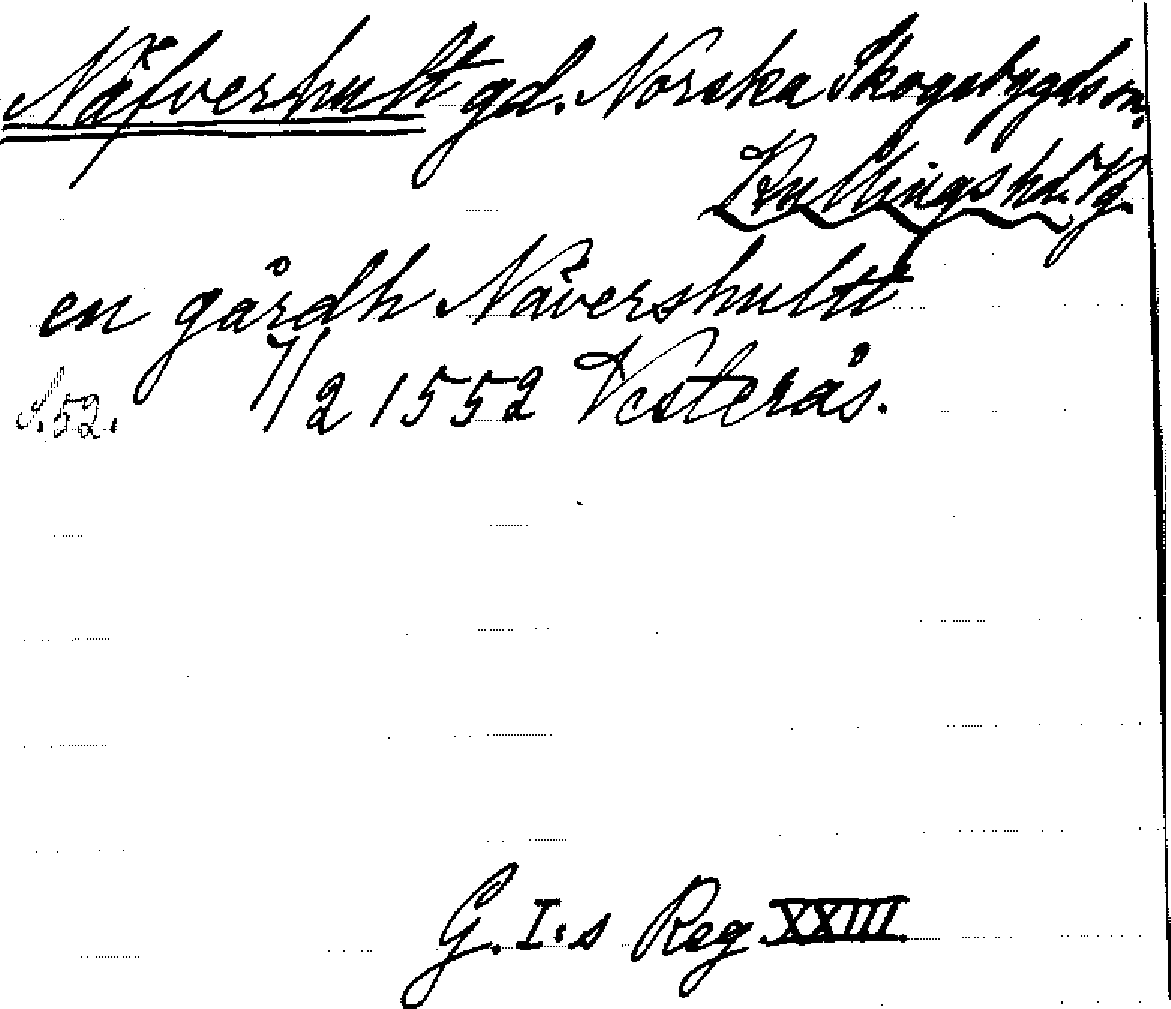 Näfverhult gd. Norska Skogsbygds sn,
Kullings hd. Vg.
en gårdh Nävershultt
S. 52. 7/2 1552 Vesterås.
G. I:s Reg. XXIII.